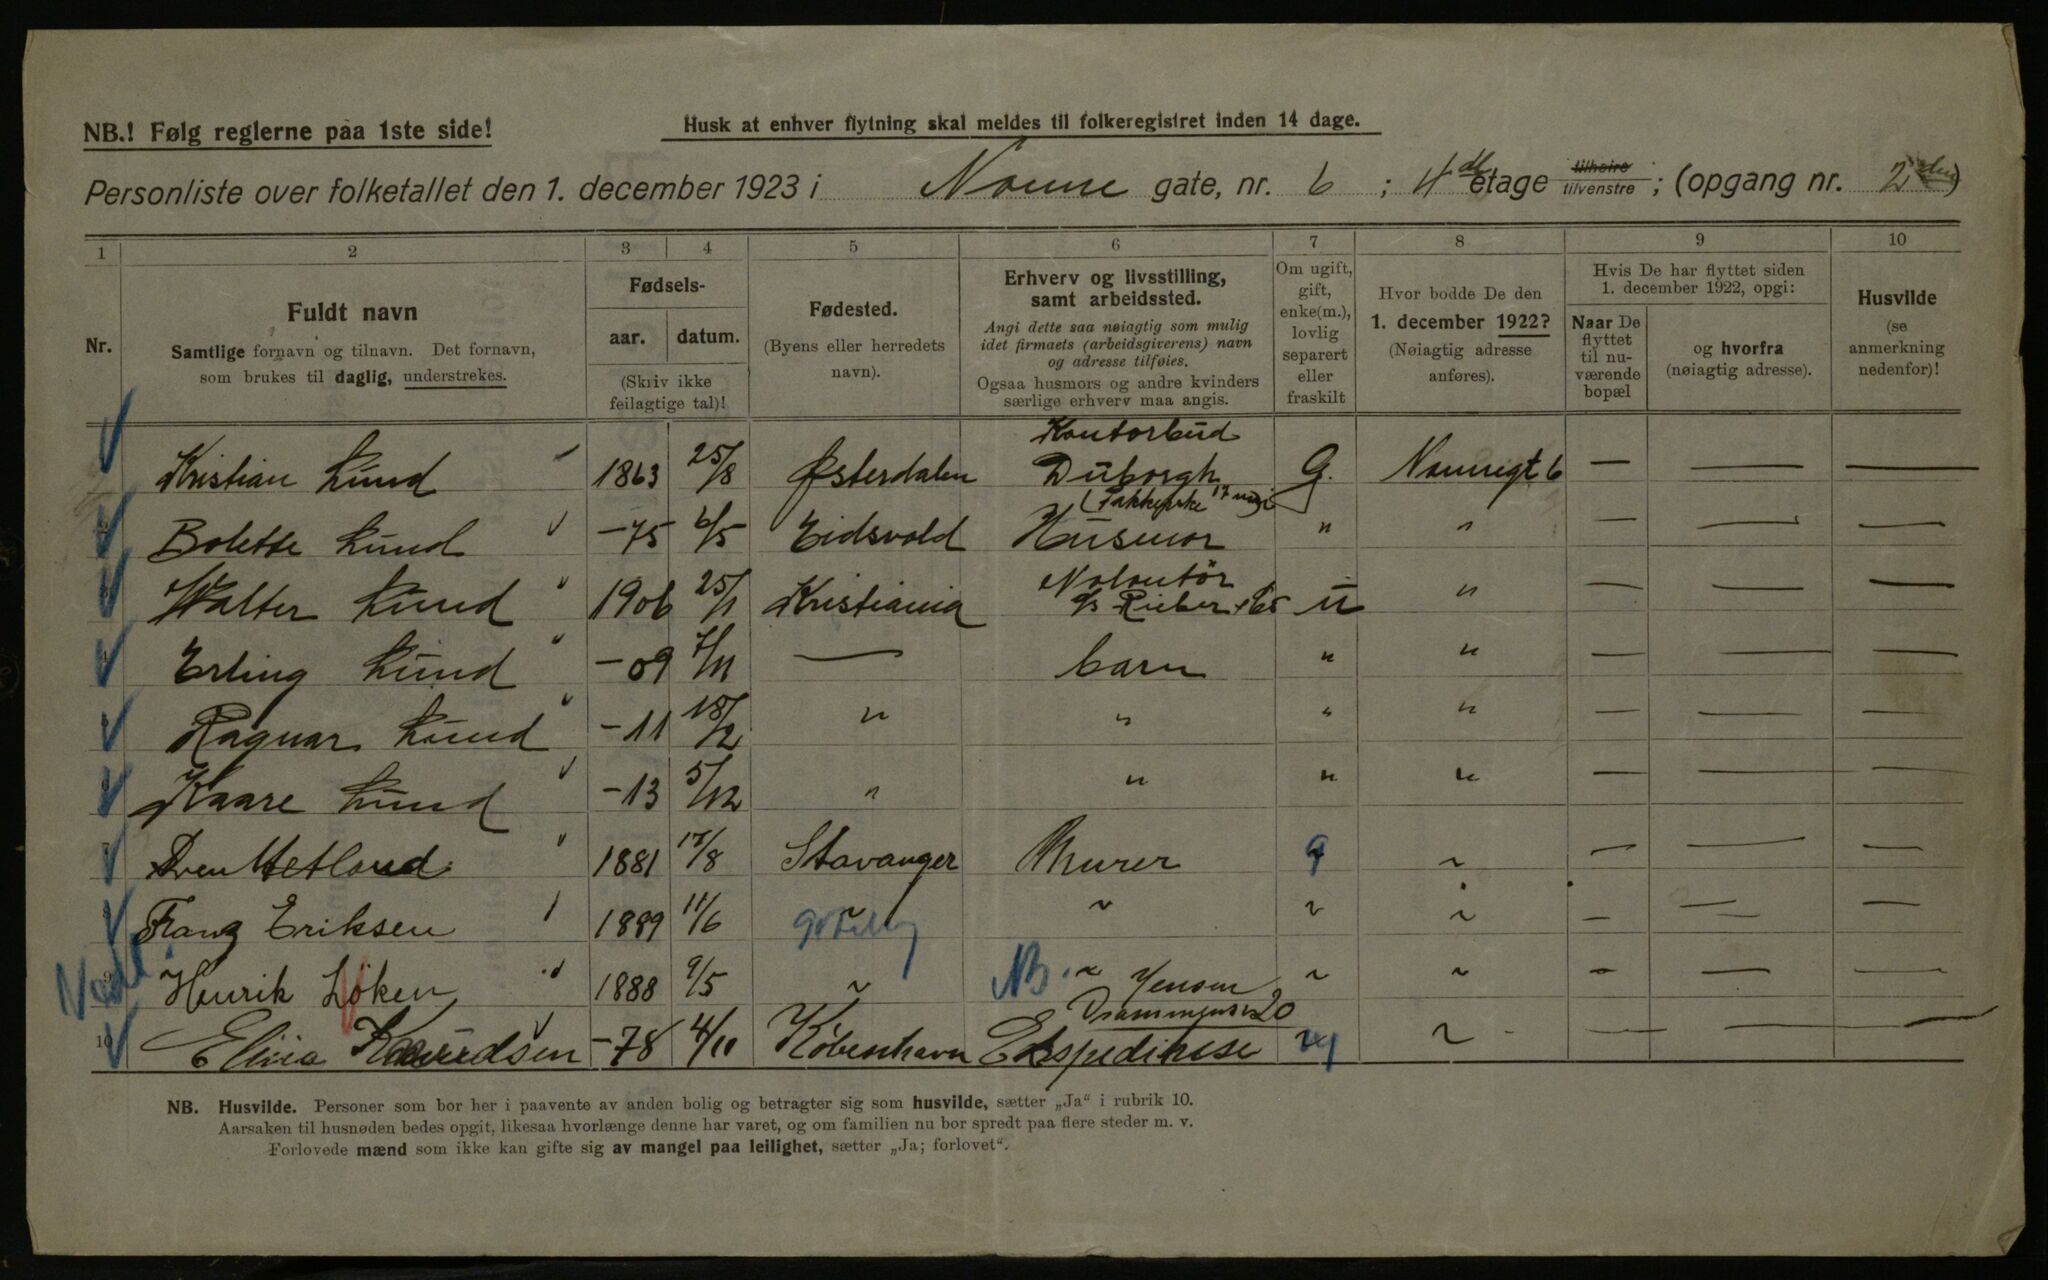 NB.! Følg reglerne paa 1ste side!
Husk at enhver flytning skal meldes til folkeregistret inden 14 dage.
Personliste over folketallet den 1. december 1923 i Nonne gate, nr. 6 ; 4de etage tilhøire tilvenstre ; (opgang nr. 2den)
1 2 3 4 5 6 7 8 9 10
Nr.
Fuldt navn
Samtlige fornavn og tilnavn. Det fornavn,
som brukes til daglig, understrekes.
Fødsels-
aar. datum.
(Skriv ikke
feilagtige tal)!
Fødested.
(Byens eller herredets
navn).
Erhverv og livsstilling,
samt arbeidssted.
Angi dette saa nøiagtig som mulig
idet firmaets (arbeidsgiverens) navn
og adresse tilføies.
Ogsaa husmors og andre kvinders
særlige erhverv maa angis.
Om ugift,
gift,
enke(m.),
lovlig
separert
eller
fraskilt
Hvor bodde De den
1. december 1922?
(Nøiagtig adresse
anføres).
Hvis De har flyttet siden
1. december 1922, opgi:
Naar De
flyttet
til nu-
værende
bopæl
og hvorfra
(nøiagtig adresse).
Husvilde
(se
anmerkning
nedenfor)!
Kontorbud
Kristian Lund 1863 25/8 Østerdalen Duborgh G. Nonnegt 6 — — —
2 Bolette Lund —75 6/5 Eidsvold Husmor " " — — —
Volontör
3 Walter Lund 1906 25/1 Kristiania Rieber ü " — — —
4 Erling Lund —09 7/11 — barn " " — — —
5 Ragnar Lund —11 18/2 " " " " — — —
6 Kaare Lund —13 5/12 " " " " — — —
7 Sven Hetland 1881 17/8 Stavanger Murer g " — — —
8 Franz Eriksen 1889 11/6 " " " " — — —
9 Henrik Løken 1888 9/5 " NB. " Jensen " " — — —
Drammensv 20
10 Elina Knudsen —78 4/11 København Ekspedirese " — — —
NB. Husvilde. Personer som bor her i paavente av anden bolig og betragter sig som husvilde, sætter „Ja“ i rubrik 10.
Aarsaken til husnøden bedes opgit, likesaa hvorlænge denne har varet, og om familien nu bor spredt paa flere steder m. v.
Forlovede mænd som ikke kan gifte sig av mangel paa leilighet, sætter „Ja; forlovet“.